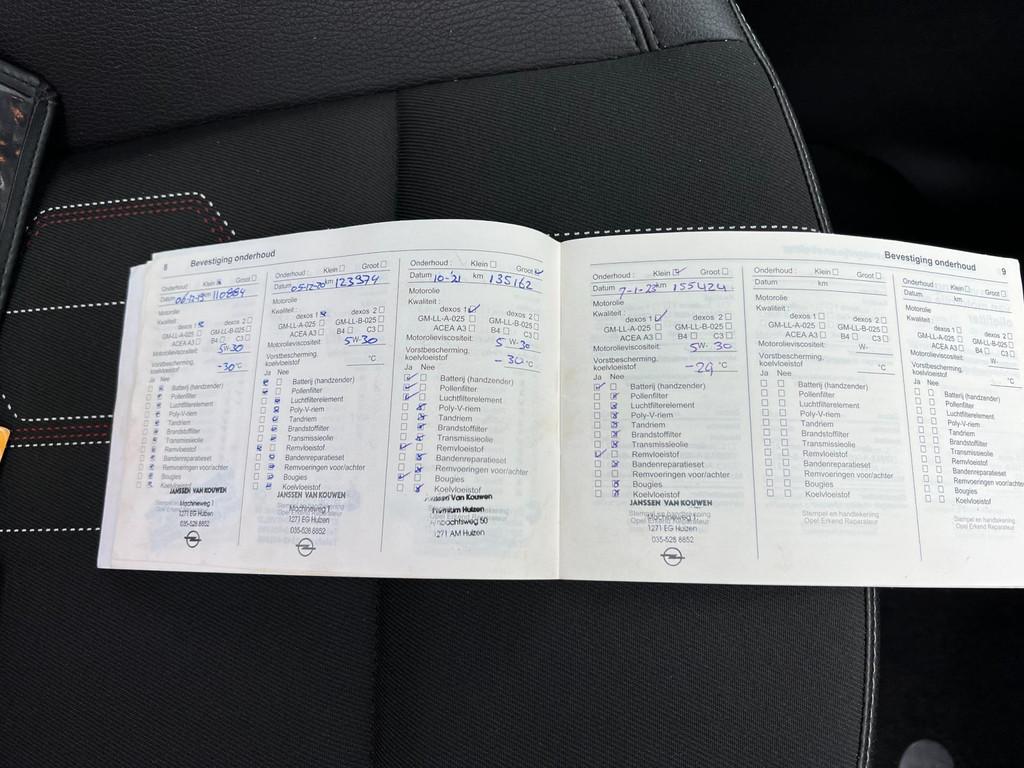 8 Bevestiging onderhoud
Onderhoud : Klein Groot
Datum 06-12-19 km 110984
Motorolie
Kwaliteit :
dexos 1 dexos 2
GM-LL-A-025 GM-LL-B-025
ACEA A3 B4 C3
Motorolieviscositeit: 5W-30
Vorstbescherming,
koelvloeistof -30 °C
Ja Nee
Batterij (handzender)
Pollenfilter
Luchtfilterelement
Poly-V-riem
Tandriem
Brandstoffilter
Transmissieolie
Remvloeistof
Bandenreparatieset
Remvoeringen voor/achter
Bougies
Koelvloeistof
JANSSEN VAN KOUWEN
Machineweg 1
1271 EG Huizen
035-528 8852
Onderhoud : Klein Groot
Datum 05-12-20 km 123974
Motorolie
Kwaliteit :
dexos 1 dexos 2
GM-LL-A-025 GM-LL-B-025
ACEA A3 B4 C3
Motorolieviscositeit: 5W-30
Vorstbescherming,
koelvloeistof °C
Ja Nee
Batterij (handzender)
Pollenfilter
Luchtfilterelement
Poly-V-riem
Tandriem
Brandstoffilter
Transmissieolie
Remvloeistof
Bandenreparatieset
Remvoeringen voor/achter
Bougies
Koelvloeistof
JANSSEN VAN KOUWEN
Machineweg 1
1271 EG Huizen
035-528 8852
Onderhoud : Klein Groot
Datum 10-'21 km 135162
Motorolie
Kwaliteit :
dexos 1 dexos 2
GM-LL-A-025 GM-LL-B-025
ACEA A3 B4 C3
Motorolieviscositeit: 5W-30
Vorstbescherming,
koelvloeistof -30 °C
Ja Nee
Batterij (handzender)
Pollenfilter
Luchtfilterelement
Poly-V-riem
Tandriem
Brandstoffilter
Transmissieolie
Remvloeistof
Bandenreparatieset
Remvoeringen voor/achter
Bougies
Koelvloeistof
Van Kouwen
Huizen
50
1271 AM Huizen
Bevestiging onderhoud 9
Onderhoud : Klein Groot
Datum 7-1-23 km 155424
Motorolie
Kwaliteit :
dexos 1 dexos 2
GM-LL-A-025 GM-LL-B-025
ACEA A3 B4 C3
Motorolieviscositeit: 5W-30
Vorstbescherming,
koelvloeistof -29 °C
Ja Nee
Batterij (handzender)
Pollenfilter
Luchtfilterelement
Poly-V-riem
Tandriem
Brandstoffilter
Transmissieolie
Remvloeistof
Bandenreparatieset
Remvoeringen voor/achter
Bougies
Koelvloeistof
JANSSEN VAN KOUWEN
Stempel en handtekening
Machineweg 1
Opel Erkend Reparateur
1271 EG Huizen
035-528 8852
Onderhoud : Klein Groot
Datum km
Motorolie
Kwaliteit :
dexos 1 dexos 2
GM-LL-A-025 GM-LL-B-025
ACEA A3 B4 C3
Motorolieviscositeit: W-
Vorstbescherming,
koelvloeistof °C
Ja Nee
Batterij (handzender)
Pollenfilter
Luchtfilterelement
Poly-V-riem
Tandriem
Brandstoffilter
Transmissieolie
Remvloeistof
Bandenreparatieset
Remvoeringen voor/achter
Bougies
Koelvloeistof
Stempel en handtekening
Opel Erkend Reparateur
Onderhoud : Klein Groot
Datum km
Motorolie
Kwaliteit :
dexos 1 dexos 2
GM-LL-A-025 GM-LL-B-025
ACEA A3 B4 C3
Motorolieviscositeit: W-
Vorstbescherming,
koelvloeistof °C
Ja Nee
Batterij (handzender)
Pollenfilter
Luchtfilterelement
Poly-V-riem
Tandriem
Brandstoffilter
Transmissieolie
Remvloeistof
Bandenreparatieset
Remvoeringen voor/achter
Bougies
Koelvloeistof
Stempel en handtekening
Opel Erkend Reparateur